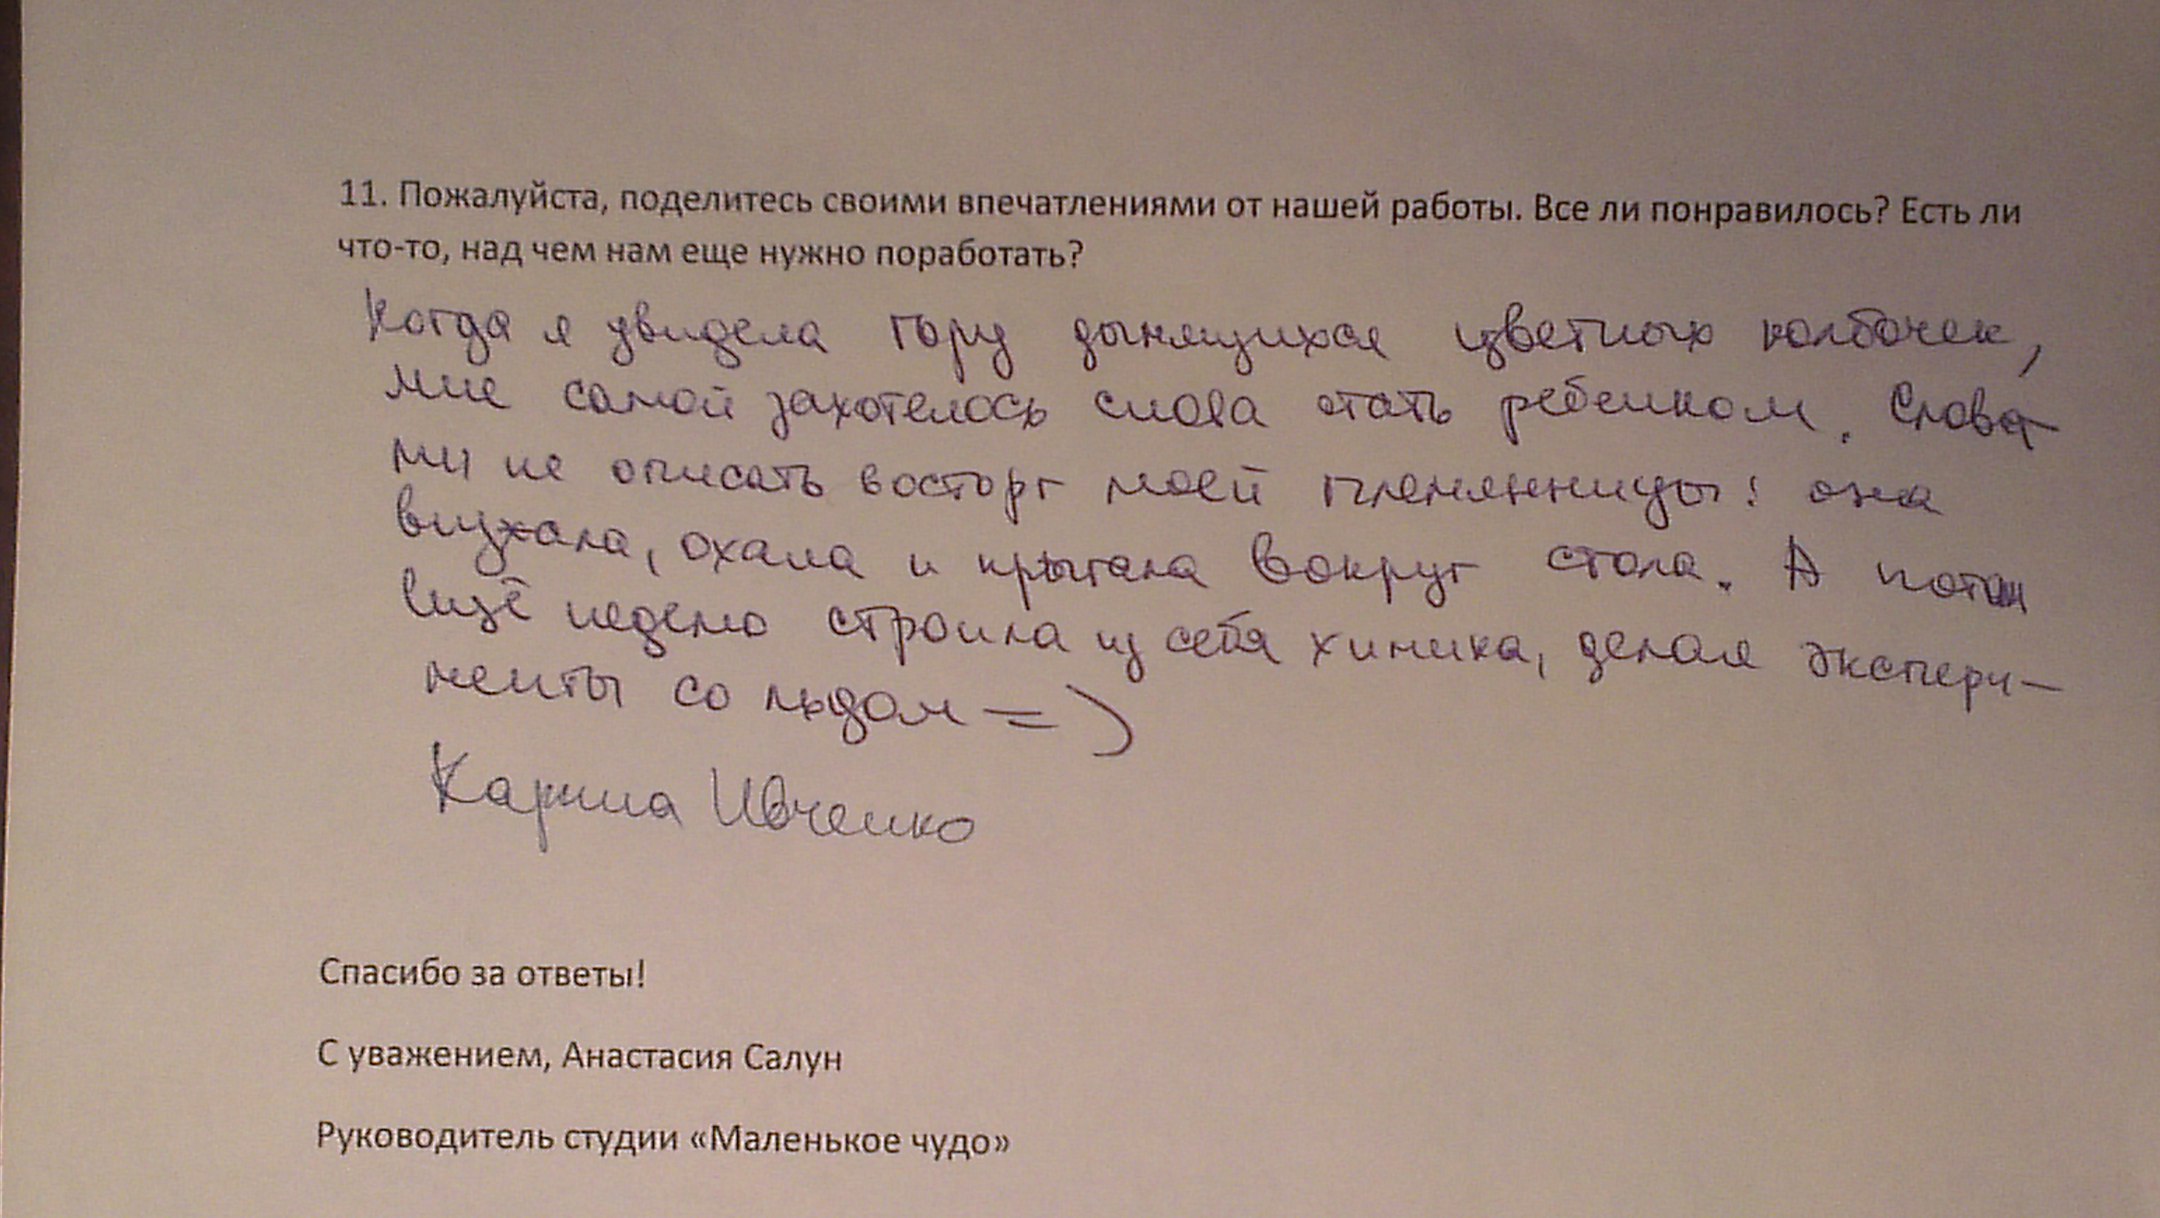 11. Пожалуйста, поделитесь своими впечатлениями от нашей работы. Все ли понравилось? Есть ли
что-то, над чем нам еще нужно поработать?
Когда я увидела гору дымящихся цветных колбочек,
мне самой захотелось снова стать ребенком. Слова-
ми не описать восторг моей племянницы! она
визжала, охала и прыгала вокруг стола. А потом
ещё неделю строила из себя химика, делая экспери-
менты со льдом =)
Карина Ивченко
Спасибо за ответы!
С уважением, Анастасия Салун
Руководитель студии «Маленькое чудо»